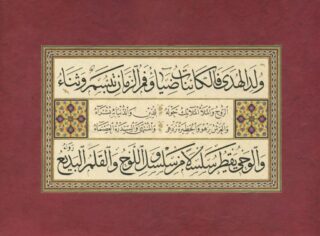 ولد الهدى فالكائنات ضياء وفم الزمان تبسم وثناء
الروح والملأ الملائك حوله للدين والدنيا به بشراء
والعرش يزهو والحظيرة تزدهي والمنتهى والسدرة العصماء
والوحي يقطر سلسلا من سلسل واللوح والقلم البديع رواء